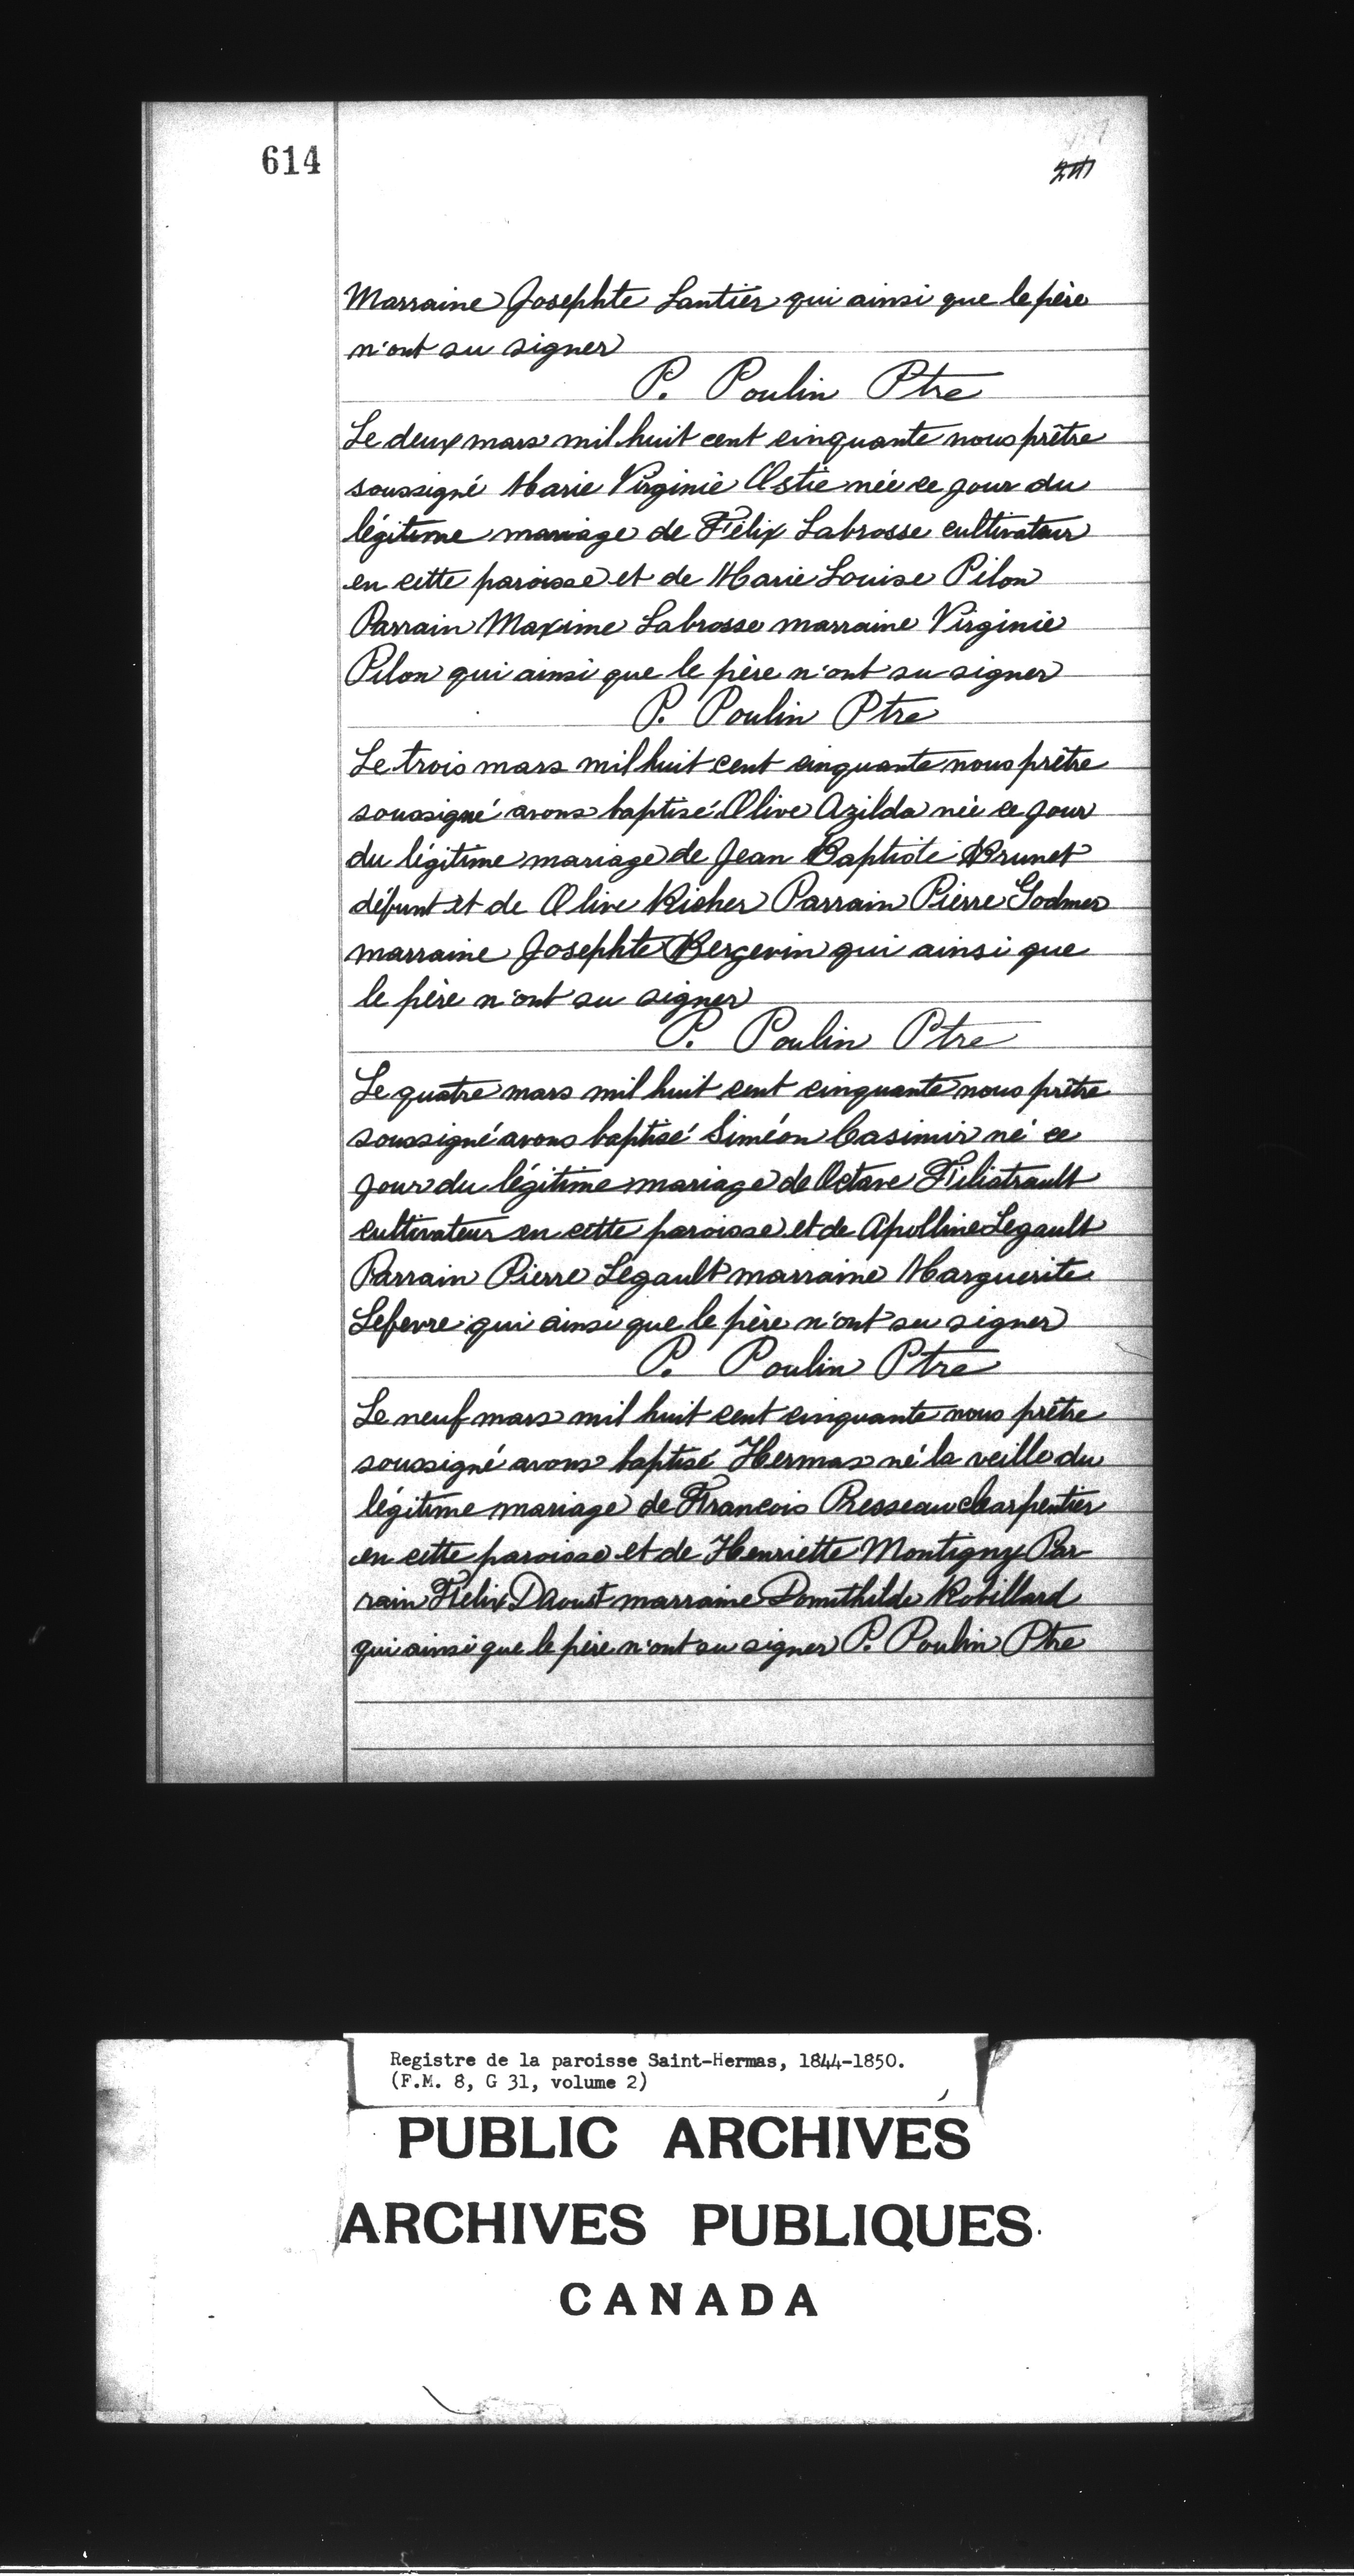 614
Marraine Josephte Lantier qui ainsi que le père
n'ont su signer
P. Poulin Ptre
Le deux mars mil huit cent cinquante nous prêtre
soussigné Marie Virginie Ostie née ce jour du
légitime mariage de Félix Labrosse cultivateur
en cette paroisse et de Marie Louise Pilon
Parrain Maxime Labrosse marraine Virginie
Pilon qui ainsi que le père n'ont su signer
P. Poulin Ptre
Le trois mars mil huit cent cinquante nous prêtre
soussigné avons baptisé Olive Azilda née ce jour
du légitime mariage de Jean Baptiste Brunet
défunt et de Olive Richer Parrain Pierre Godmer
marraine Josephte Bergevin qui ainsi que
le père n'ont su signer
P. Poulin Ptre
Le quatre mars mil huit cent cinquante nous prêtre
soussigné avons baptisé Siméon Casimir né ce
jour du légitime mariage de Octave Filiatrault
cultivateur en cette paroisse et de Apolline Legault
Parrain Pierre Legault marraine Marguerite
Lefevre qui ainsi que le père n'ont su signer
P. Poulin Ptre
Le neuf mars mil huit cent cinquante nous prêtre
soussigné avons baptisé Hermas né la veille du
légitime mariage de Francois Presseau charpentier
en cette paroisse et de Henriette Montigny Par
rain Félix Daoust marraine Domithilde Robillard
qui ainsi que le père n'ont su signer P. Poulin Ptre
Registre de la paroisse Saint-Hermas, 1844-1850.
(F.M. 8, G 31, volume 2)
PUBLIC ARCHIVES
ARCHIVES PUBLIQUES
CANADA